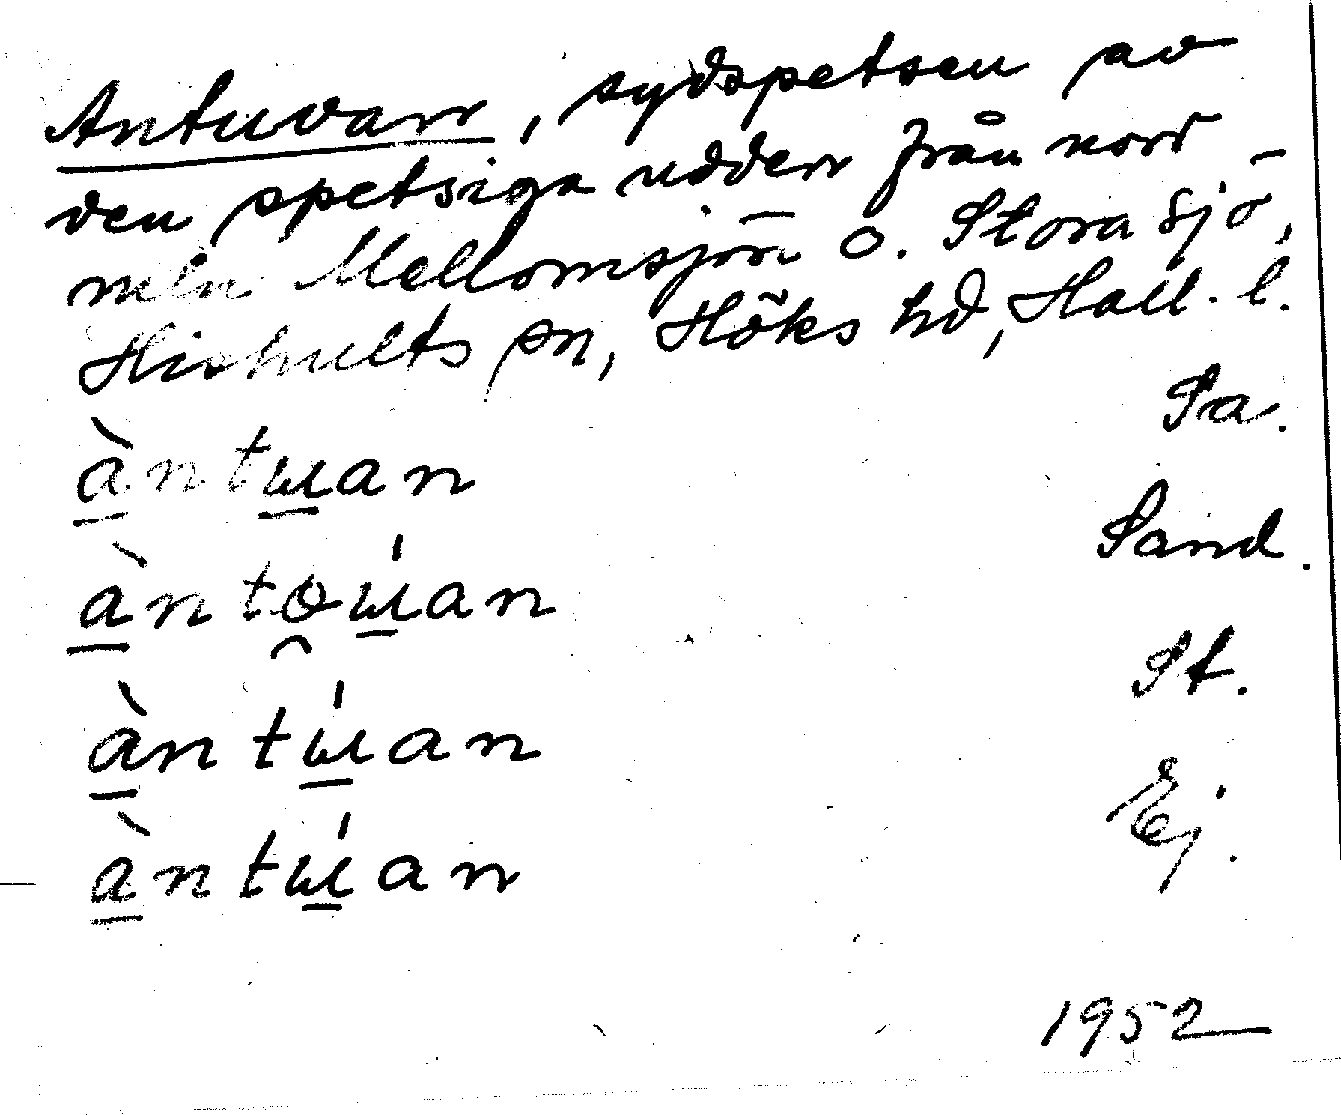 Antuvarr, sydspetsen av
den spetsiga udden från nord
mln Mellomsjön o. Stora Sjö,
Hishults sn, Höks hd, Hall. l.
Sa.
àntɯan
Sand.
àntoɯ́an
St.
àntɯ́an
Ej.
àntɯ́an
1952